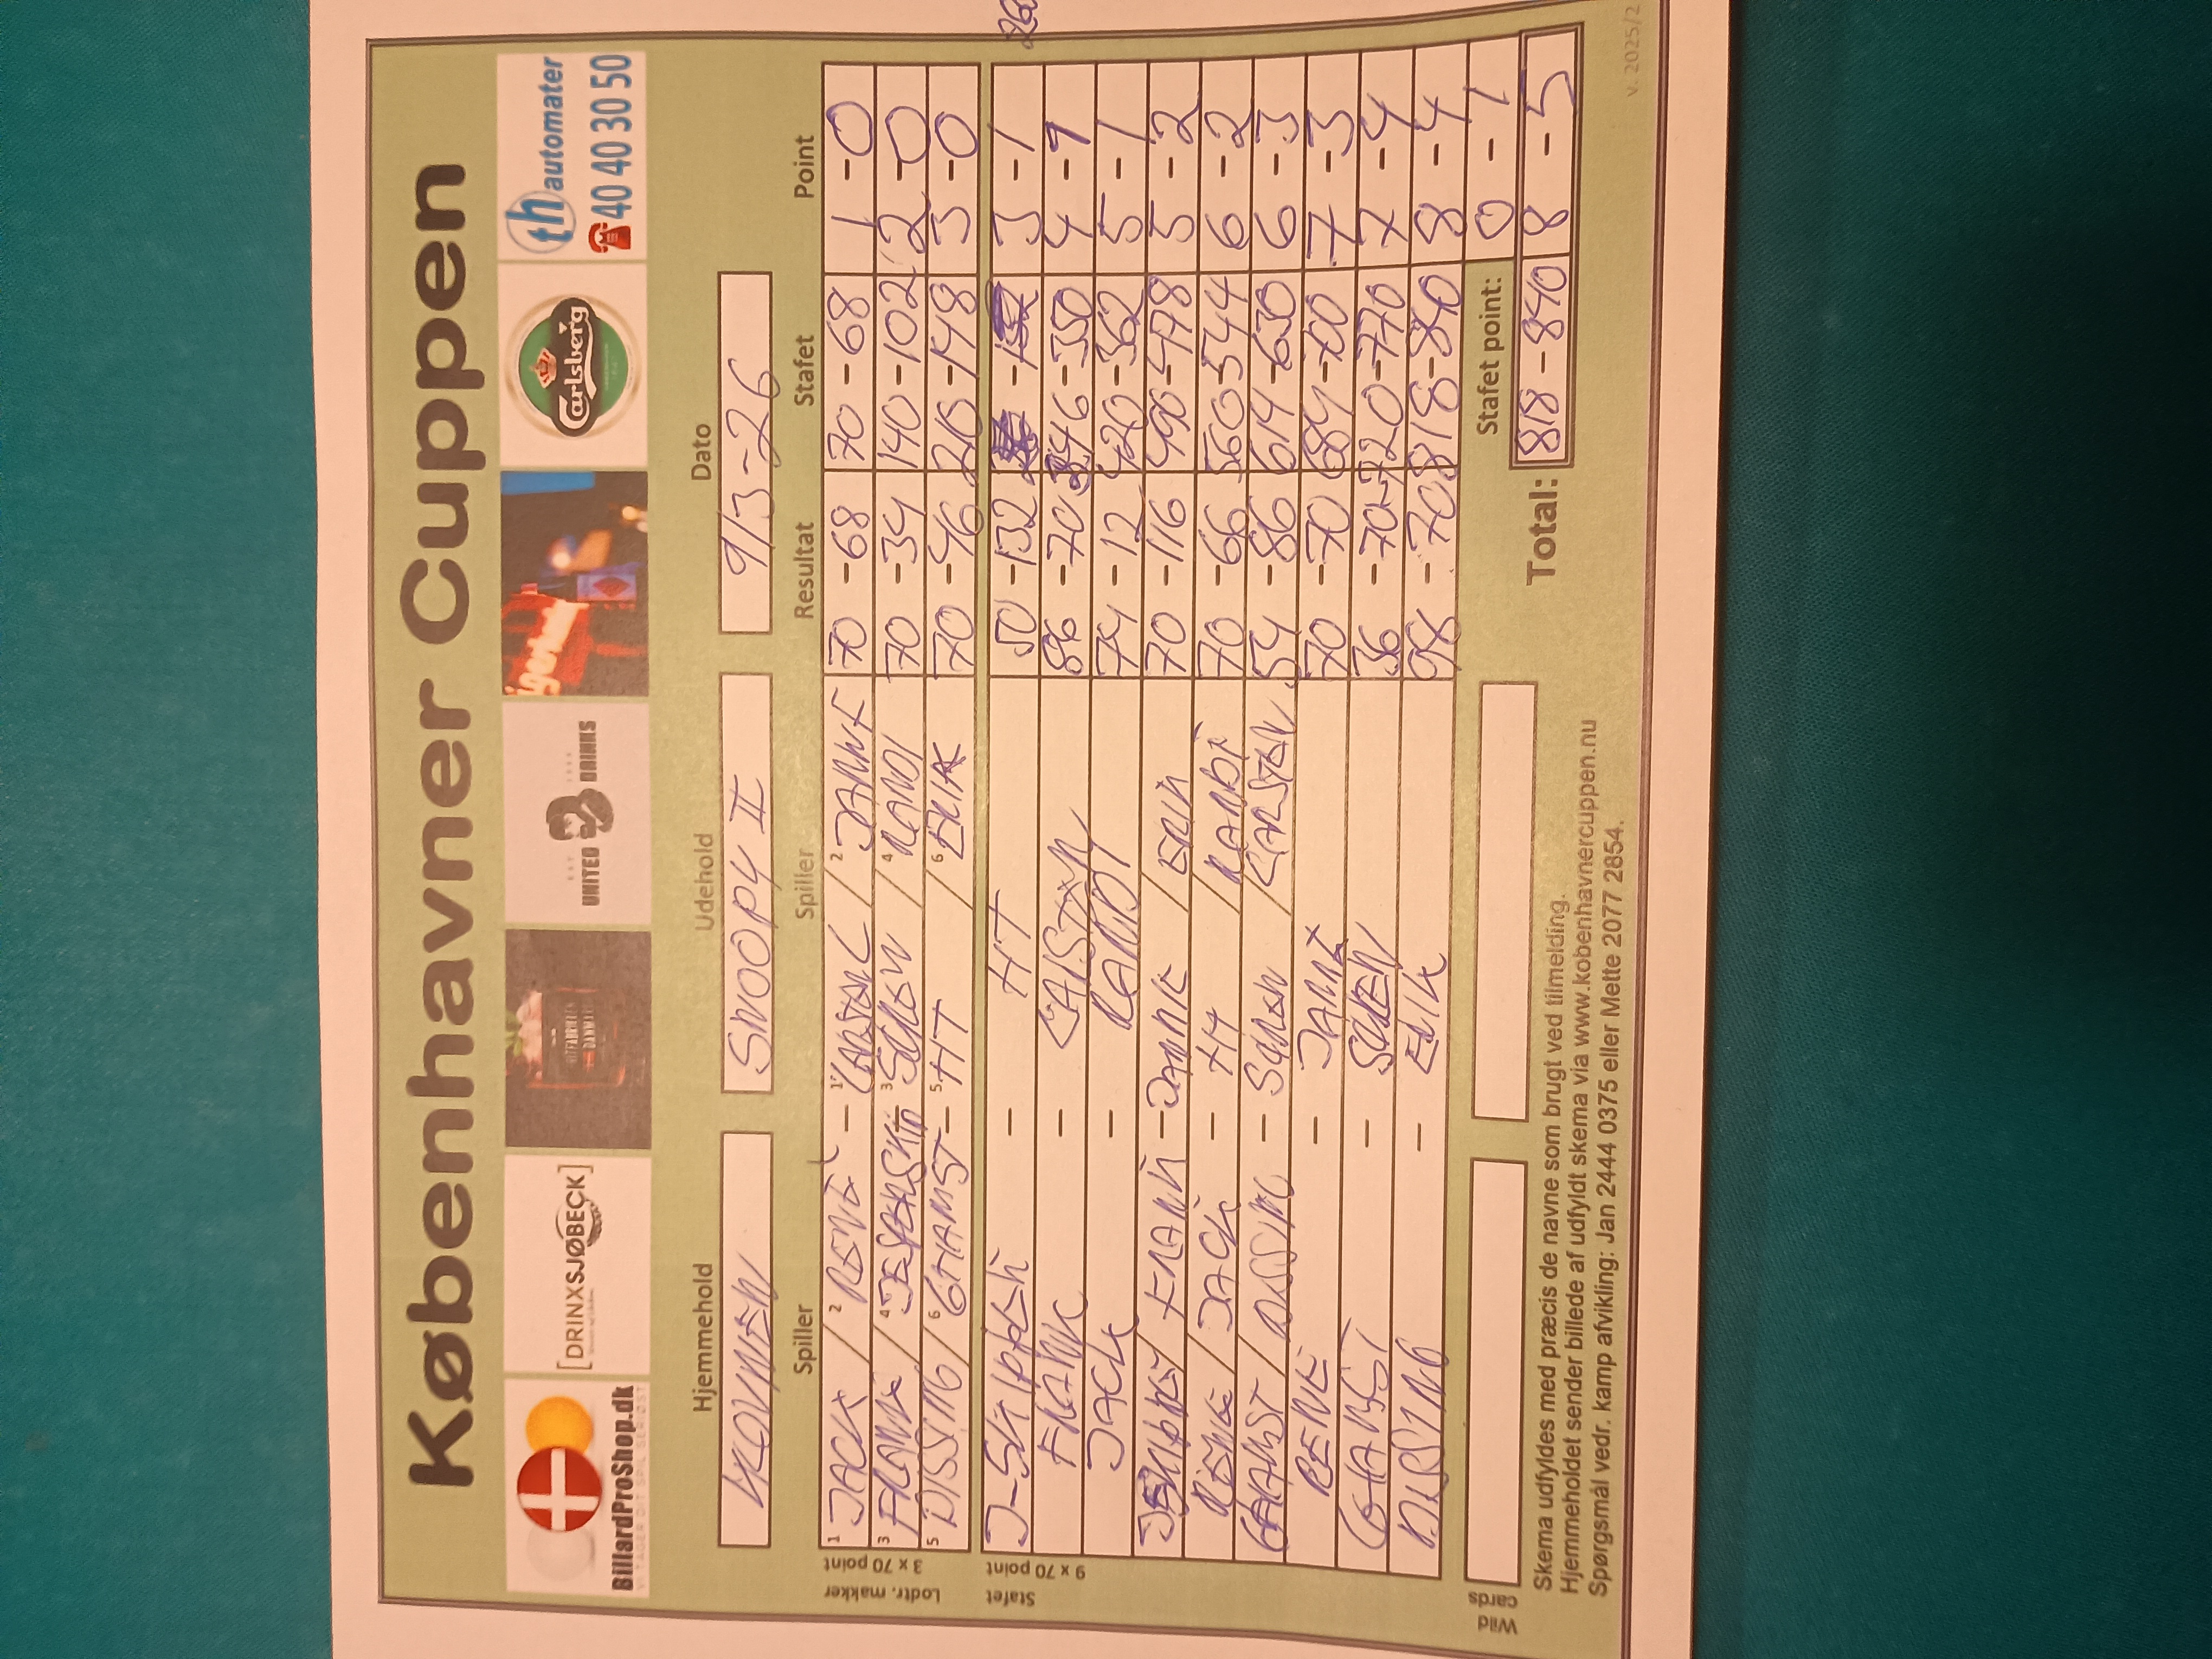 Københavner Cuppen
BillardProShop.dk
[DRINXSJØBECK]
UNITED DRINKS
Carlsberg
th automater
40 40 30 50
Hjemmehold Udehold Dato
KLOVNEN SNOOPY II 9/3-26
Spiller Spiller Resultat Stafet Point
Lodtr. makker 3 x 70 point
1 JACK / 2 RENÉ - 1 CARSTEN / 2 JANNE 70-68 70-68 1-0
3 FRANK / 4 - 3 SØREN / 4 RANDI 70-34 140-102 2-0
5 DISSING / 6 GHANST - 5 HT / 6 ERIK 70-46 210-148 3-0
Stafet 9 x 70 point
- HT 50-132 3-1
FRANK - 86-70 346-350 4-1
JACK - RANDI 74-12 420-362 5-1
/ FRANK - JANNE / ERIK 70-116 490-478 5-2
RENÉ / JACK - HT / RANDI 70-66 560-544 6-2
GHANST / DISSING - SØREN / CARSTEN 54-86 614-630 6-3
RENÉ - JANNE 70-70 684-700 7-3
GHANST - SØREN 36-70 720-770 7-4
DISSING - ERIK 98-70 818-840 8-4
Wild cards Stafet point: 0-1
Total: 818-840 8-5
Skema udfyldes med præcis de navne som brugt ved tilmelding.
Hjemmeholdet sender billede af udfyldt skema via www.kobenhavnercuppen.nu
Spørgsmål vedr. kamp afvikling: Jan 2444 0375 eller Mette 2077 2854.
v. 2025/2